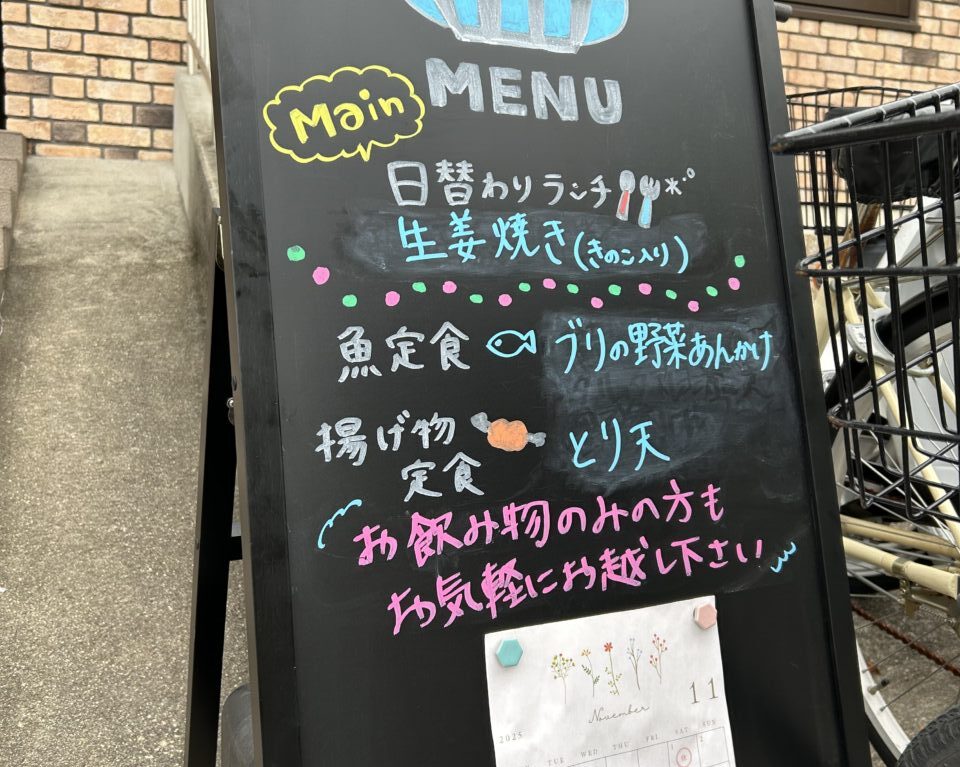 MENU
Main
日替わりランチ
生姜焼き(きのこ入り)
魚定食 ブリの野菜あんかけ
揚げ物
定食 とり天
お飲み物のみの方も
お気軽にお越し下さい
November 11
2025
TUE WED THU FRI SAT SUN
1 2